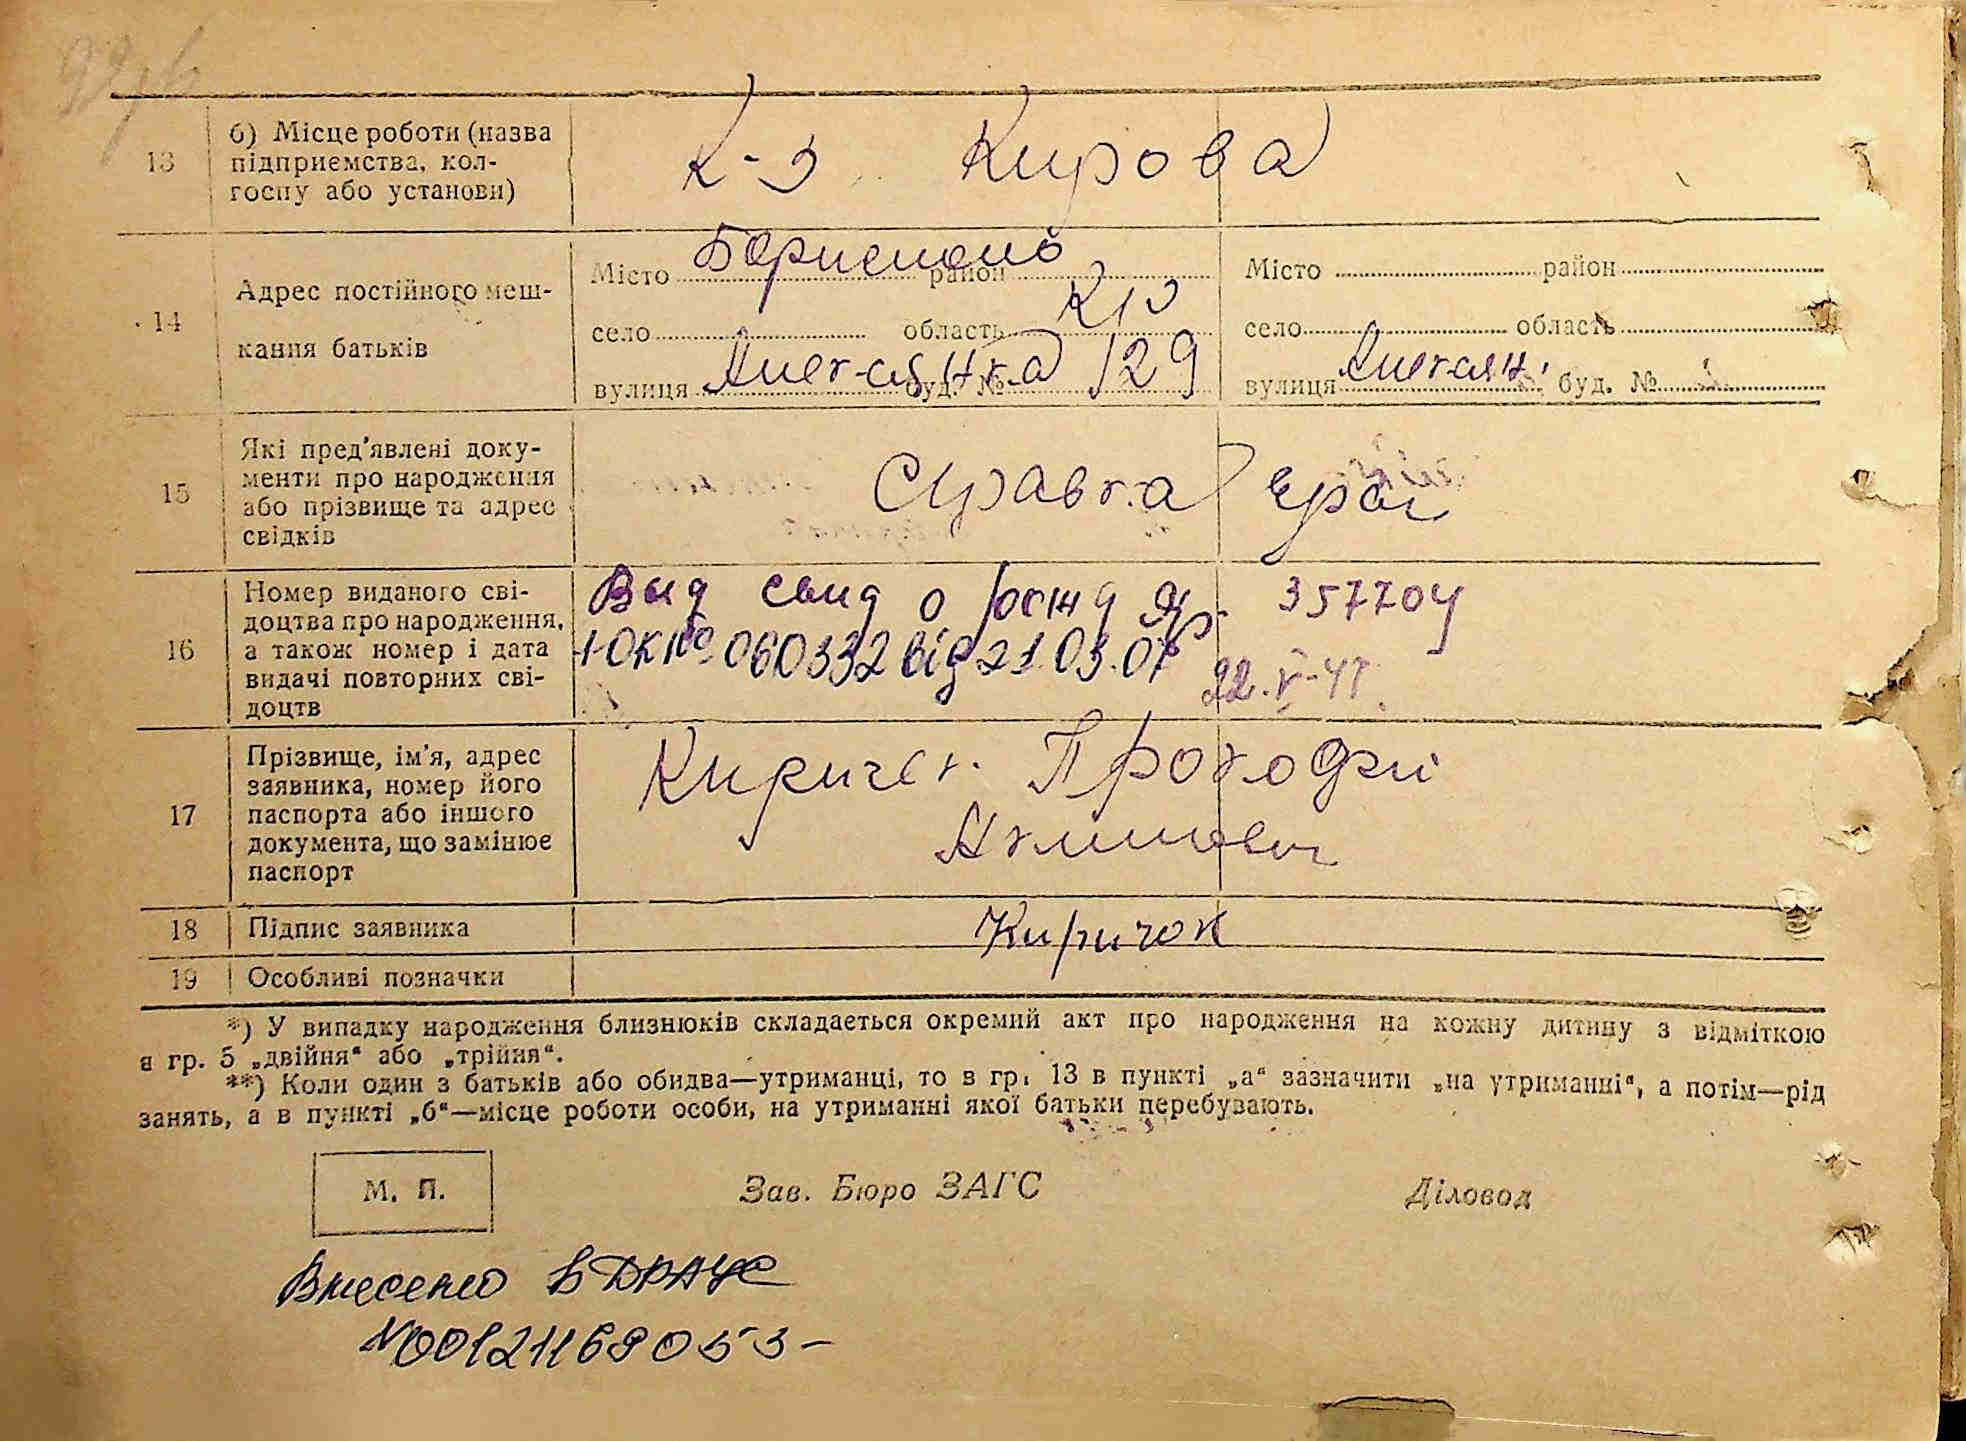 13 б) Місце роботи (назва
підприємства, кол-
госпу або установи)
К-з Кирова
14 Адрес постійного меш-
кання батьків
Місто Бориспель район
село область
вулиця буд. № 129
Місто район
село область
вулиця буд. №
15 Які пред'явлені доку-
менти про народження
або прізвище та адрес
свідків
Справка
16 Номер виданого сві-
доцтва про народження,
а також номер і дата
видачі повторних сві-
доцтв
Выд свид о рожд 357704
1-ОК № 060332 від 21.03.07
22.V-41.
17 Прізвище, ім'я, адрес
заявника, номер його
паспорта або іншого
документа, що замінює
паспорт
Киричек Прокофий
18 Підпис заявника
Киричок
19 Особливі позначки
*) У випадку народження близнюків складається окремий акт про народження на кожну дитину з відміткою
в гр. 5 „двійня“ або „трійня“.
**) Коли один з батьків або обидва—утриманці, то в гр. 13 в пункті „а“ зазначити „на утриманні“, а потім—рід
занять, а в пункті „б“—місце роботи особи, на утриманні якої батьки перебувають.
М. П.
Зав. Бюро ЗАГС
Діловод
Внесено в ДРАЦС
№00121169053-